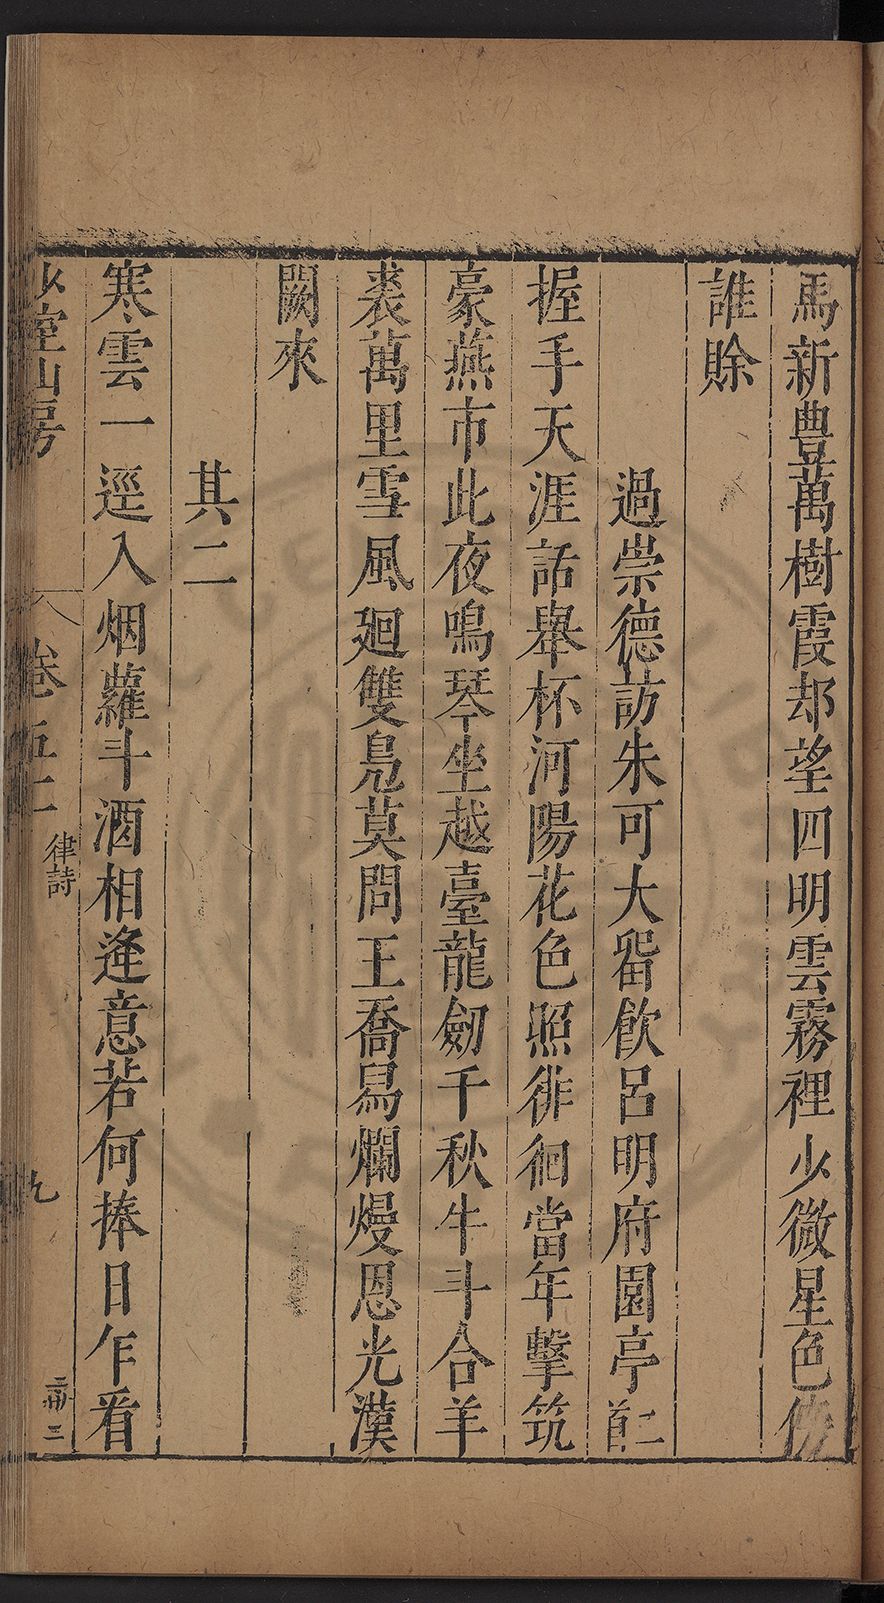 馬新豊萬樹霞却望四明雲霧裡少微星色傍
誰賒
過崇德訪朱可大畱飲呂明府園亭二首
握手天涯話舉杯河陽花色照徘徊當年擊筑
豪燕市此夜鳴琴坐越臺龍劒千秋牛斗合羊
裘萬里雪風廻雙鳧莫問王喬舄爛熳恩光漢
闕來
其二
寒雲一逕入烟蘿斗酒相逢意若何捧日乍看
少室山房
卷五十二
律詩
九
三